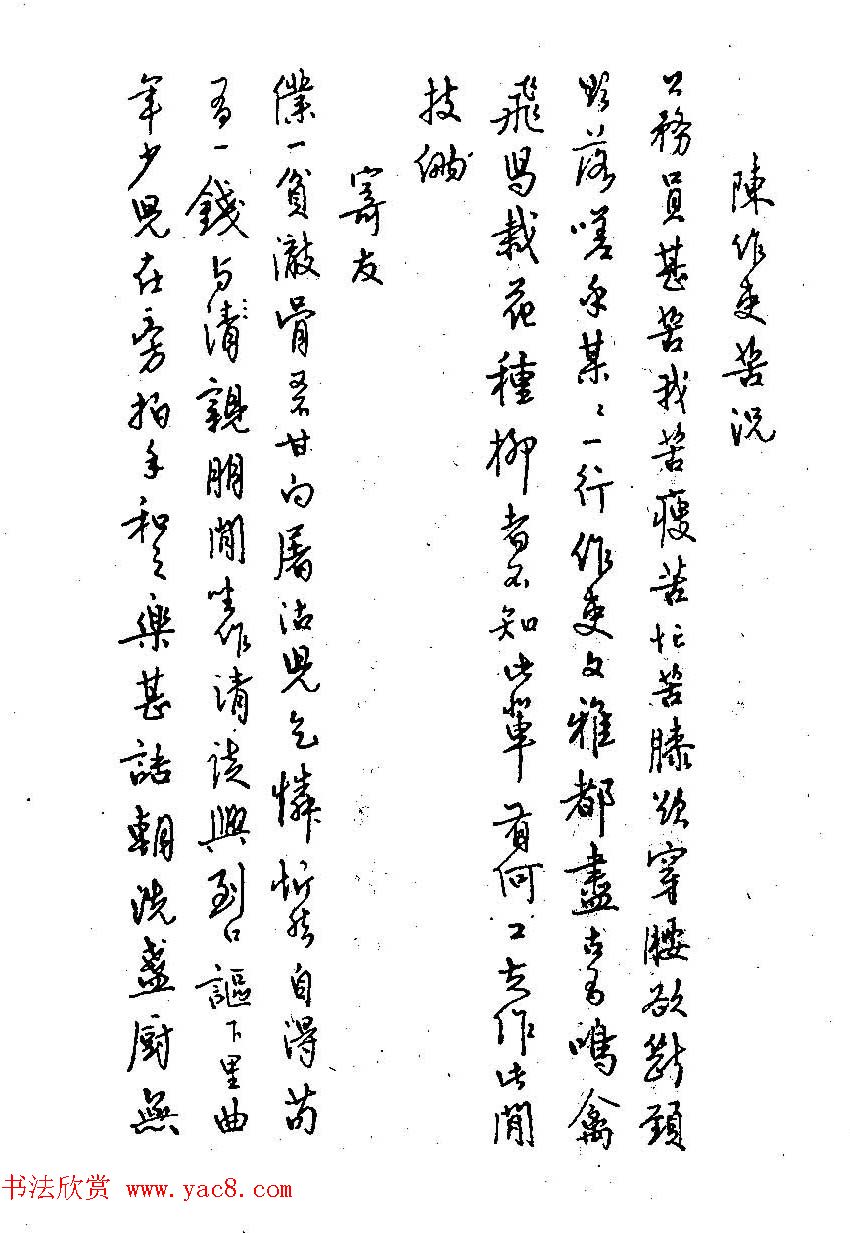 陳作吏苦況
公務員甚苦我苦瘦苦忙苦膝欲穿腰欲斷頭
欲落嗟乎某〻一行作吏文雅都盡古有鳴禽
飛舄栽花種柳者不知此輩有何工夫作此閒
技倆
寄友
僕一貧澈骨又不甘向屠沽兒乞憐忻然自得苟
有一錢与清親朋閒坐作清談興到口謳下里曲
年少兒在旁拍手和之樂甚詰朝洗盞厨無
书法欣赏 www.yac8.com